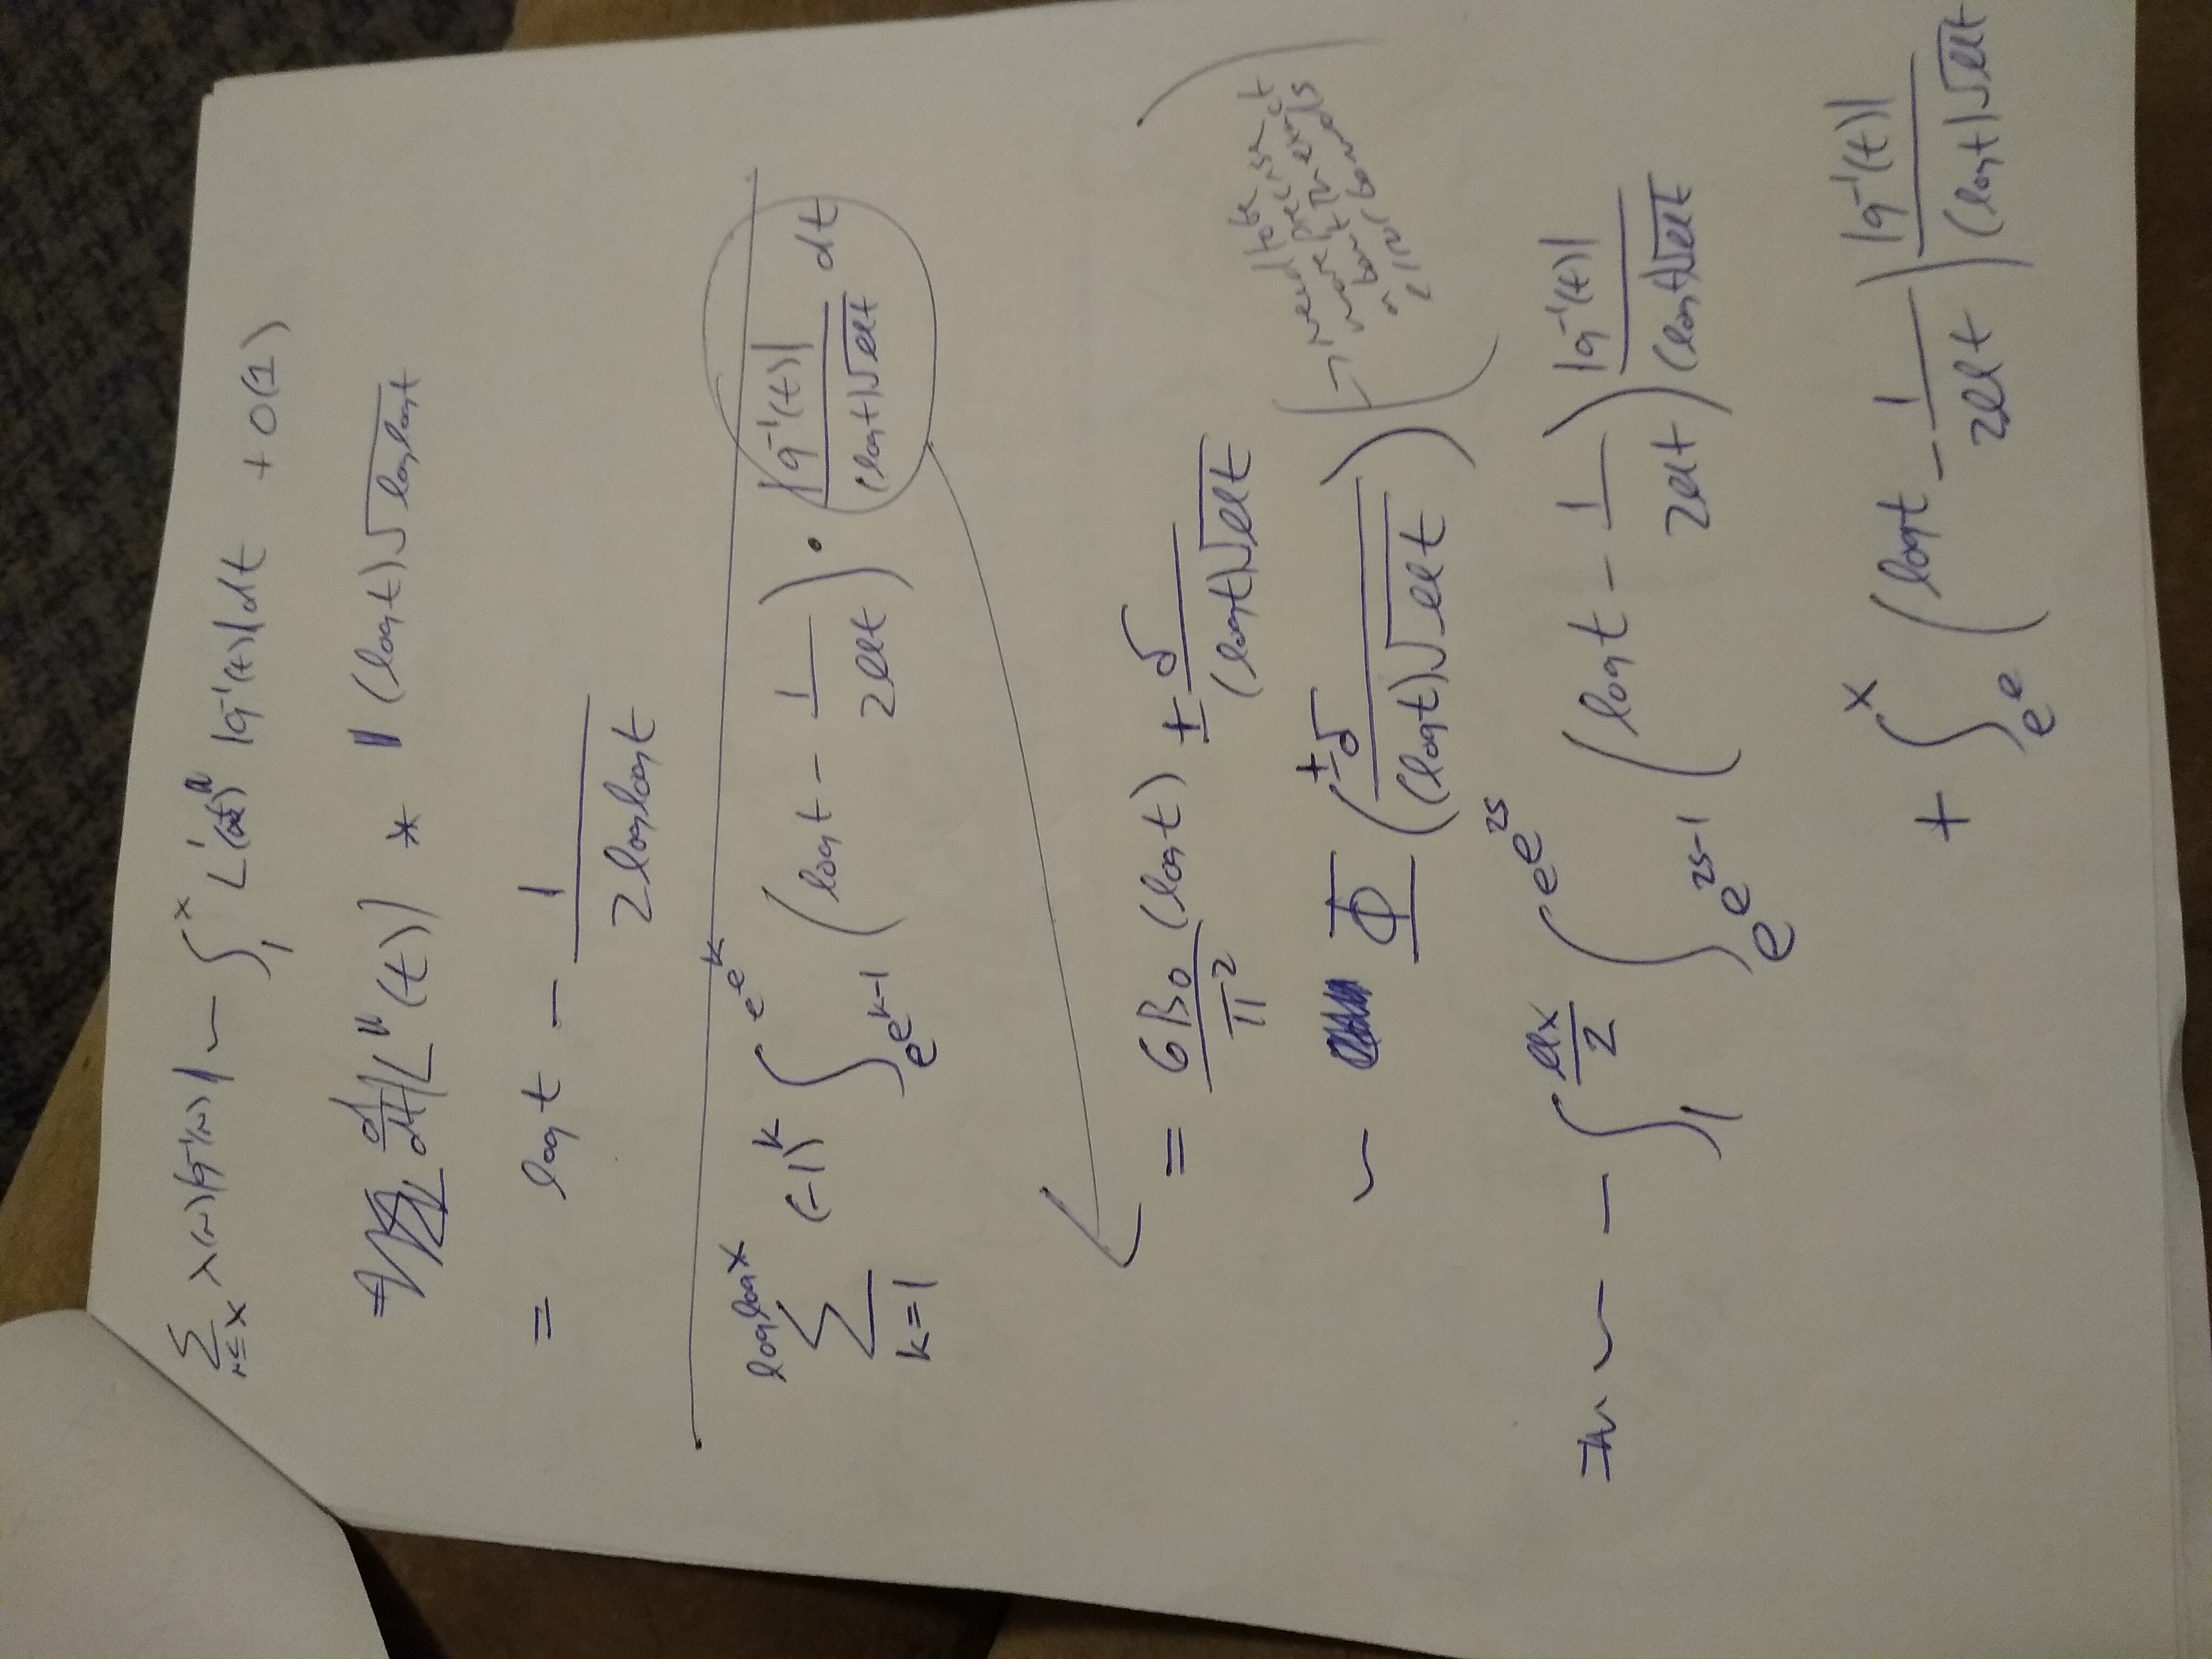 ∑_{n≤x} λ(n)|g⁻¹(n)| ~ ∫_1^x L'(t) |g⁻¹(t)| dt + O(1)
d/dt L''(t)| * (log t)√loglog t
= log t − 1/(2 loglog t)
∑_{k=1}^{loglog x} (−1)^k ∫_{e^{e^{k−1}}}^{e^{e^k}} (log t − 1/(2llt)) · |g⁻¹(t)|/((log t)√llt) dt
= 6B₀/π² (log t) ± σ/((log t)√llt)
~ Φ(±σ/((log t)√llt)) (→ need to be more precise but this exp is a nice bound)
~ − ∫_1^{llx/2} ∫_{e^{e^{2s−1}}}^{e^{e^{2s}}} (log t − 1/(2llt)) |g⁻¹(t)|/((log t)√llt)
+ ∫_{e^e}^x (log t − 1/(2llt)) |g⁻¹(t)|/((log t)√llt)